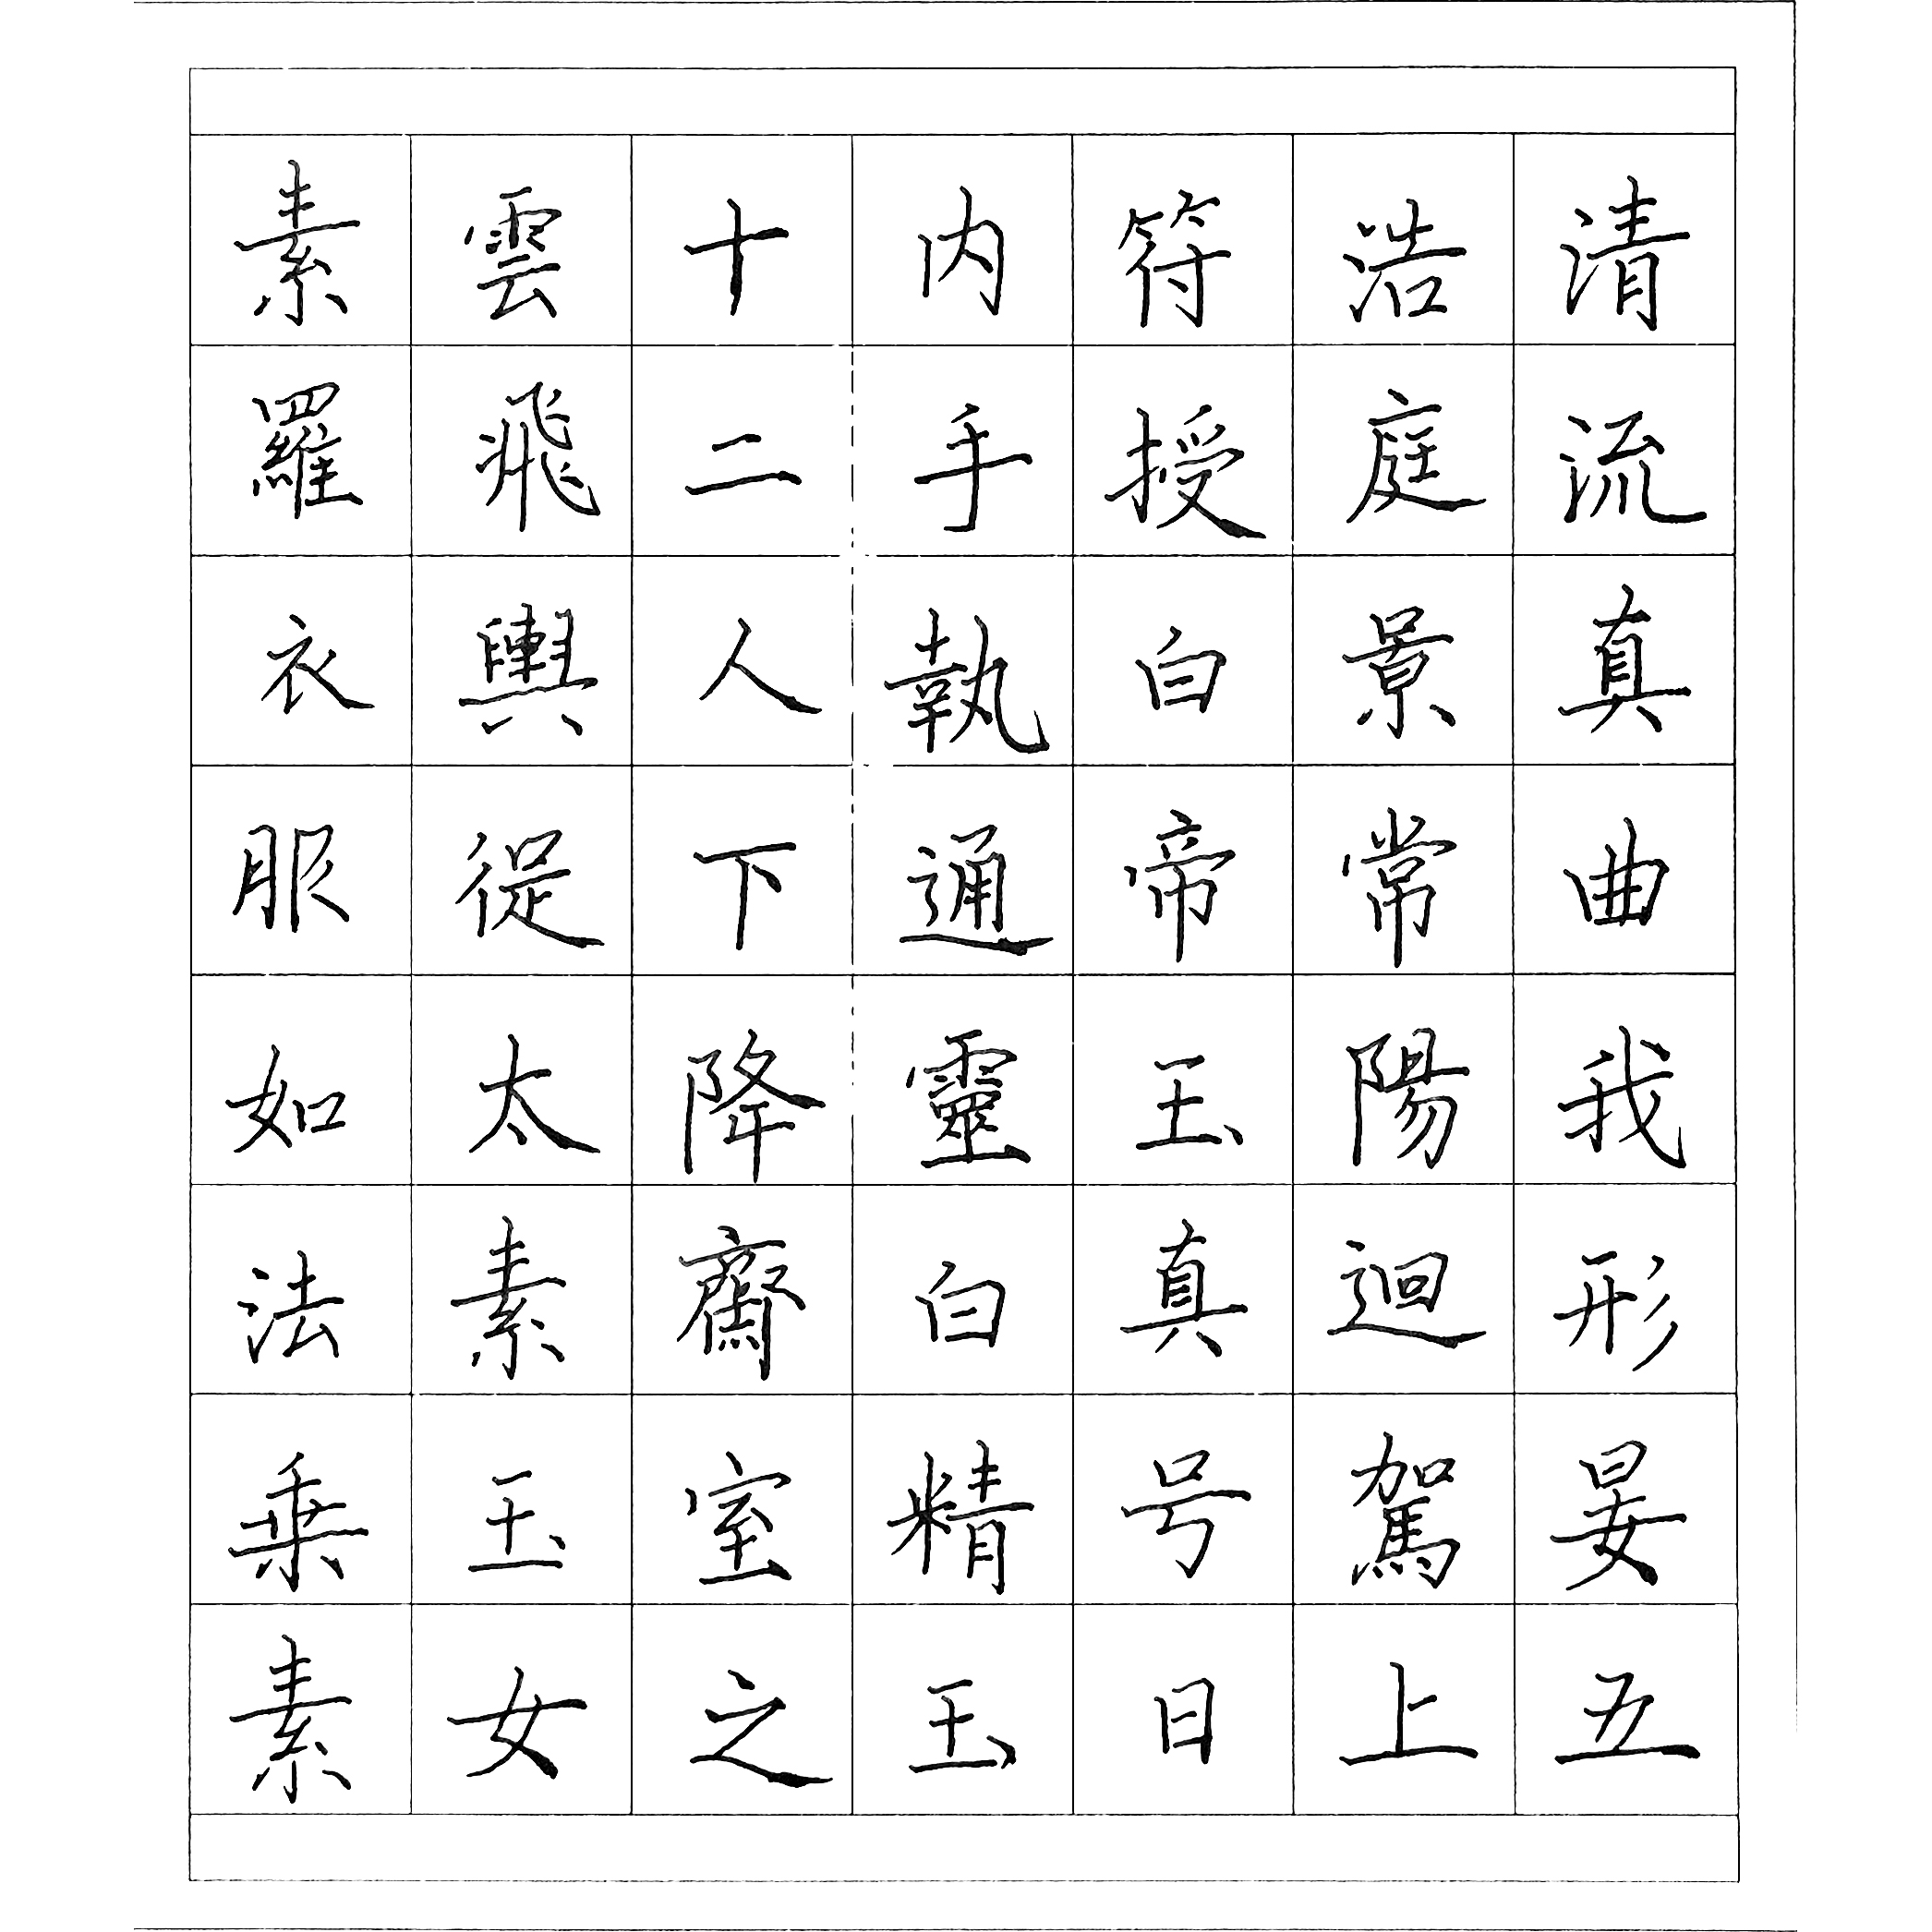 清流真曲我形晏五
浩庭景常陽迴駕上
符授白帝玉真号曰
内手執通靈白精玉
十二人下降齋室之
雲飛輿從太素玉女
素羅衣服如法乗素